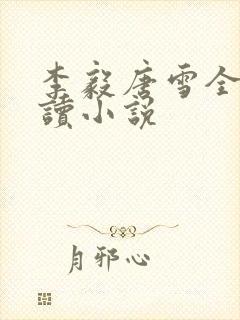 李毅唐雪全
讀小説
月邪心